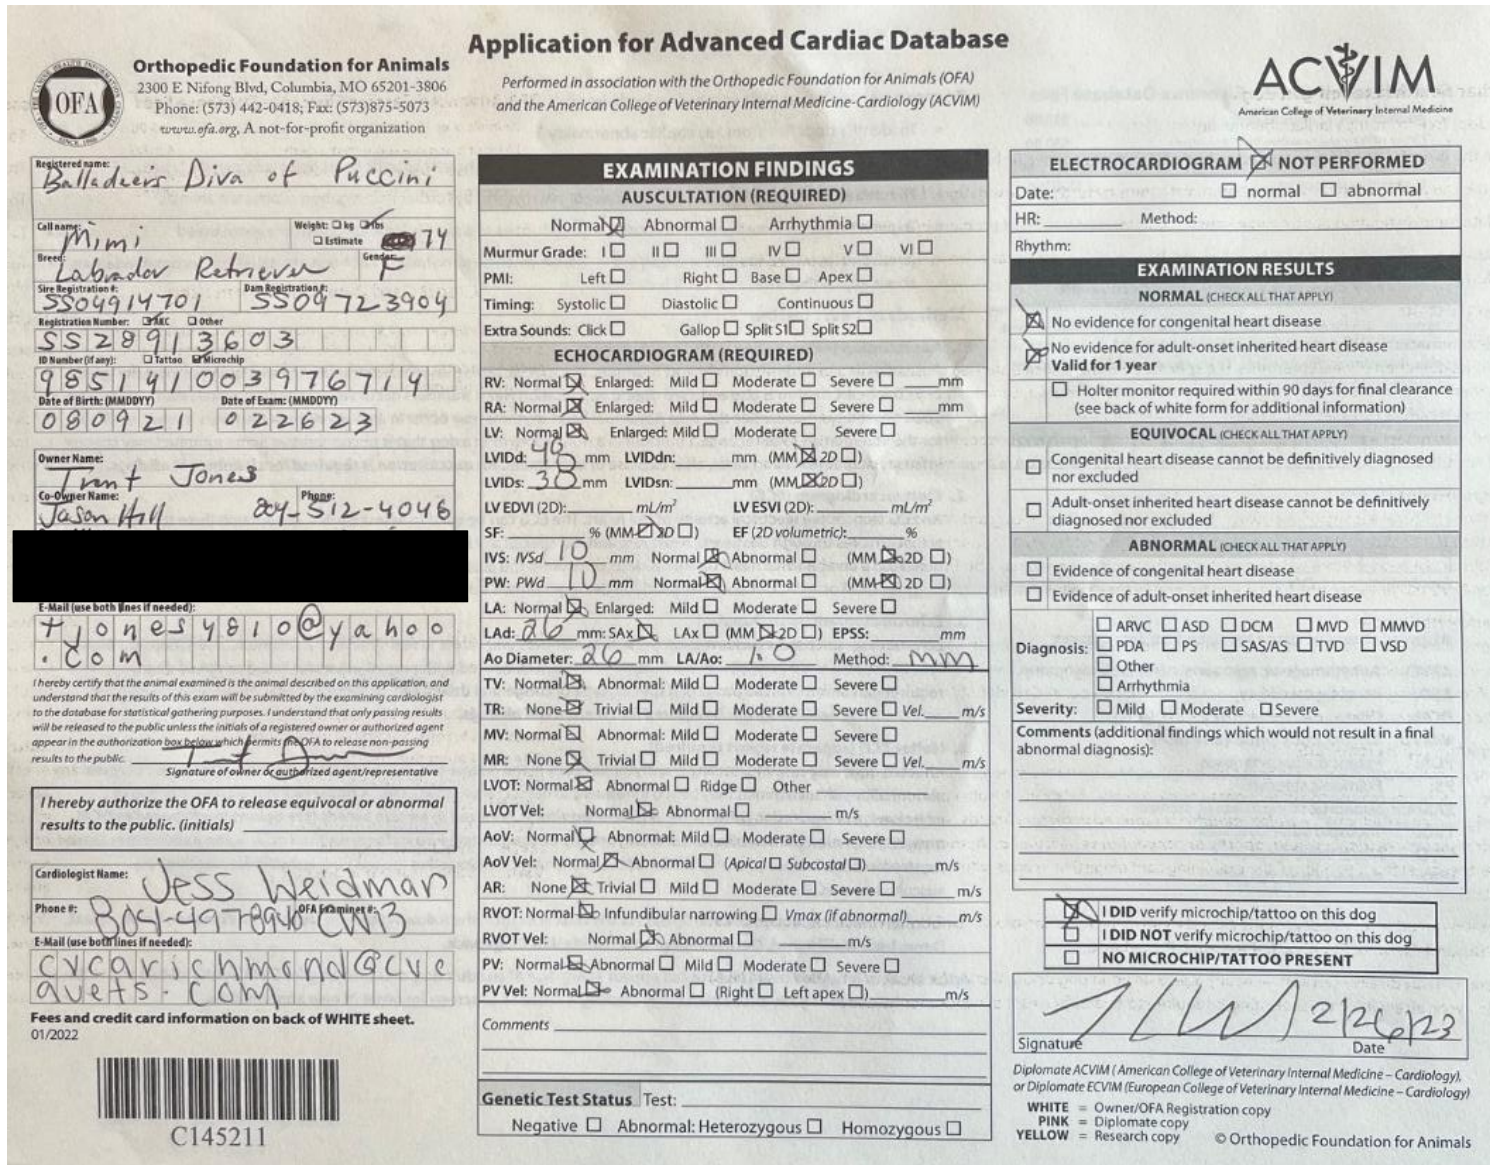 Application for Advanced Cardiac Database
Performed in association with the Orthopedic Foundation for Animals (OFA)
and the American College of Veterinary Internal Medicine-Cardiology (ACVIM)
OFA
Orthopedic Foundation for Animals
2300 E Nifong Blvd, Columbia, MO 65201-3806
Phone: (573) 442-0418; Fax: (573)875-5073
www.ofa.org, A not-for-profit organization
ACVIM
American College of Veterinary Internal Medicine
Registered name:
Balladeer's Diva of Puccini
Call name: Mimi
Weight: kg lbs
Estimate 74
Breed: Labrador Retriever Gender: F
Sire Registration #: SS04914701 Dam Registration #: SS09723904
Registration Number: AKC Other
SS28913603
ID Number (if any): Tattoo Microchip
985141003976714
Date of Birth: (MMDDYY) Date of Exam: (MMDDYY)
080921 022623
Owner Name:
Trent Jones
Co-Owner Name: Phone:
Jason Hill 804-512-4046
E-Mail (use both lines if needed):
tjones4810@yahoo
.com
I hereby certify that the animal examined is the animal described on this application, and
understand that the results of this exam will be submitted by the examining cardiologist
to the database for statistical gathering purposes. I understand that only passing results
will be released to the public unless the initials of a registered owner or authorized agent
appear in the authorization box below which permits the OFA to release non-passing
results to the public.
Signature of owner or authorized agent/representative
I hereby authorize the OFA to release equivocal or abnormal
results to the public. (initials)
Cardiologist Name: Jess Weidman
Phone #: 804-497-8940 OFA Examiner #: CW13
E-Mail (use both lines if needed):
cvcarichmond@cvc
avets.com
Fees and credit card information on back of WHITE sheet.
01/2022
C145211
EXAMINATION FINDINGS
AUSCULTATION (REQUIRED)
Normal Abnormal Arrhythmia
Murmur Grade: I II III IV V VI
PMI: Left Right Base Apex
Timing: Systolic Diastolic Continuous
Extra Sounds: Click Gallop Split S1 Split S2
ECHOCARDIOGRAM (REQUIRED)
RV: Normal Enlarged: Mild Moderate Severe mm
RA: Normal Enlarged: Mild Moderate Severe mm
LV: Normal Enlarged: Mild Moderate Severe
LVIDd: 46 mm LVIDdn: mm (MM 2D)
LVIDs: 38 mm LVIDsn: mm (MM 2D)
LV EDVI (2D): mL/m² LV ESVI (2D): mL/m²
SF: % (MM 2D) EF (2D volumetric): %
IVS: IVSd 10 mm Normal Abnormal (MM 2D)
PW: PWd 10 mm Normal Abnormal (MM 2D)
LA: Normal Enlarged: Mild Moderate Severe
LAd: 26 mm: SAx LAx (MM 2D) EPSS: mm
Ao Diameter: 26 mm LA/Ao: 1.0 Method: MM
TV: Normal Abnormal: Mild Moderate Severe
TR: None Trivial Mild Moderate Severe Vel. m/s
MV: Normal Abnormal: Mild Moderate Severe
MR: None Trivial Mild Moderate Severe Vel. m/s
LVOT: Normal Abnormal Ridge Other
LVOT Vel: Normal Abnormal m/s
AoV: Normal Abnormal: Mild Moderate Severe
AoV Vel: Normal Abnormal (Apical Subcostal) m/s
AR: None Trivial Mild Moderate Severe m/s
RVOT: Normal Infundibular narrowing Vmax (if abnormal) m/s
RVOT Vel: Normal Abnormal m/s
PV: Normal Abnormal Mild Moderate Severe
PV Vel: Normal Abnormal (Right Left apex) m/s
Comments
Genetic Test Status Test:
Negative Abnormal: Heterozygous Homozygous
ELECTROCARDIOGRAM NOT PERFORMED
Date: normal abnormal
HR: Method:
Rhythm:
EXAMINATION RESULTS
NORMAL (CHECK ALL THAT APPLY)
No evidence for congenital heart disease
No evidence for adult-onset inherited heart disease
Valid for 1 year
Holter monitor required within 90 days for final clearance
(see back of white form for additional information)
EQUIVOCAL (CHECK ALL THAT APPLY)
Congenital heart disease cannot be definitively diagnosed
nor excluded
Adult-onset inherited heart disease cannot be definitively
diagnosed nor excluded
ABNORMAL (CHECK ALL THAT APPLY)
Evidence of congenital heart disease
Evidence of adult-onset inherited heart disease
Diagnosis: ARVC ASD DCM MVD MMVD
PDA PS SAS/AS TVD VSD
Other
Arrhythmia
Severity: Mild Moderate Severe
Comments (additional findings which would not result in a final
abnormal diagnosis):
I DID verify microchip/tattoo on this dog
I DID NOT verify microchip/tattoo on this dog
NO MICROCHIP/TATTOO PRESENT
2/26/23
Signature Date
Diplomate ACVIM (American College of Veterinary Internal Medicine – Cardiology),
or Diplomate ECVIM (European College of Veterinary Internal Medicine – Cardiology)
WHITE = Owner/OFA Registration copy
PINK = Diplomate copy
YELLOW = Research copy © Orthopedic Foundation for Animals